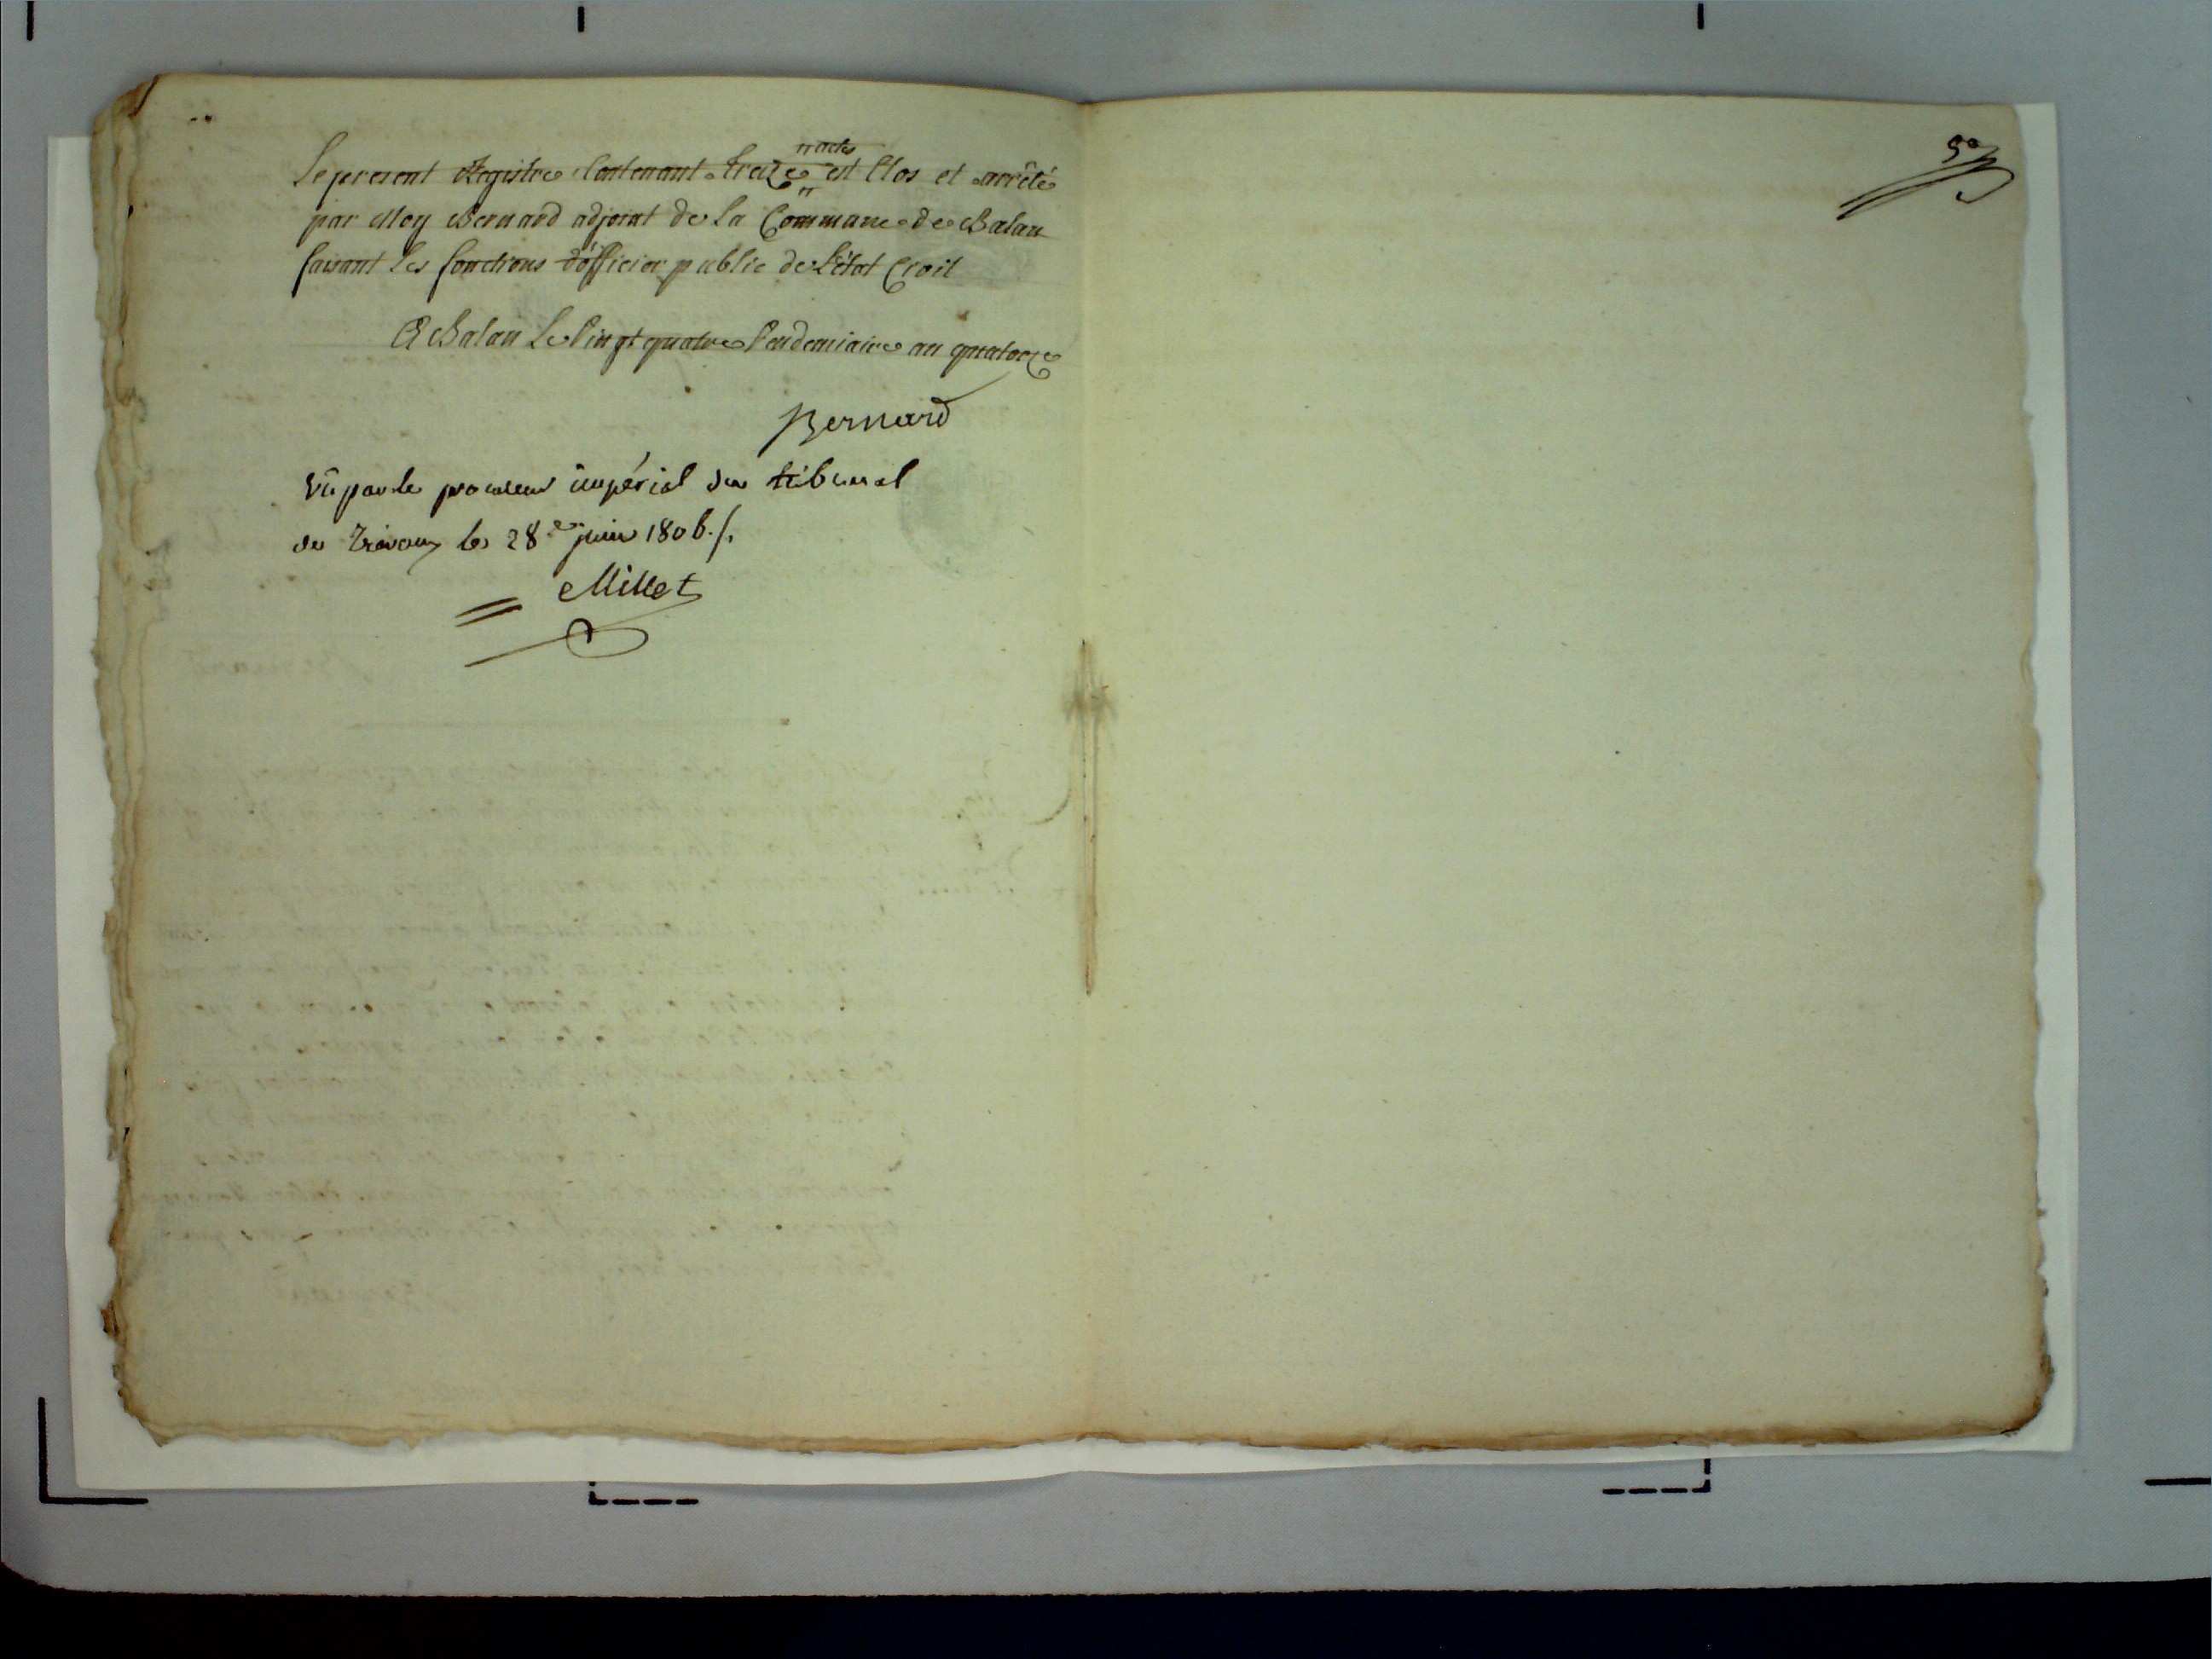 actes
Le present Registre Contenant treize est Clos et arrêté
par Moy Bernard adjoint de La Commune de Balan
faisant les fonctions d'officier public de L'état Civil
A Balan Le Vingt quatre Vendemiaire an quatorze
Bernard
Vû par le procureur impérial du tribunal
de Trévoux le 28e juin 1806./.
Millet